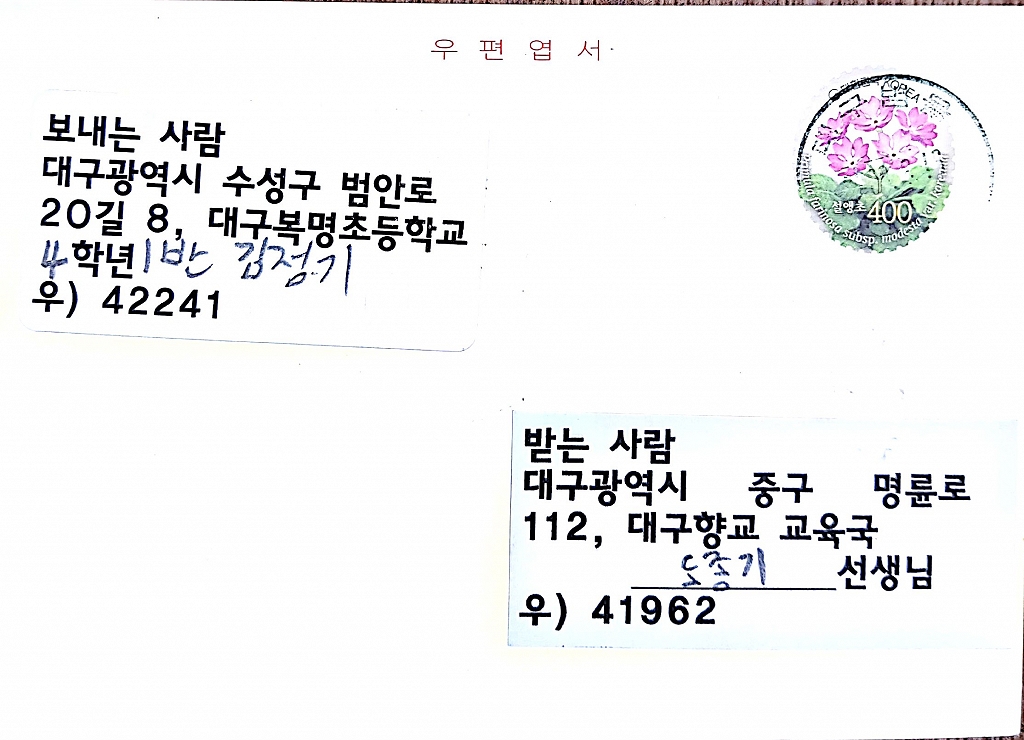 우편엽서
보내는 사람
대구광역시 수성구 범안로
20길 8, 대구복명초등학교
4학년 1반 김정기
우) 42241
KOREA
설앵초 400
farinosa subsp. modesta var.
받는 사람
대구광역시 중구 명륜로
112, 대구향교 교육국
도종기 선생님
우) 41962